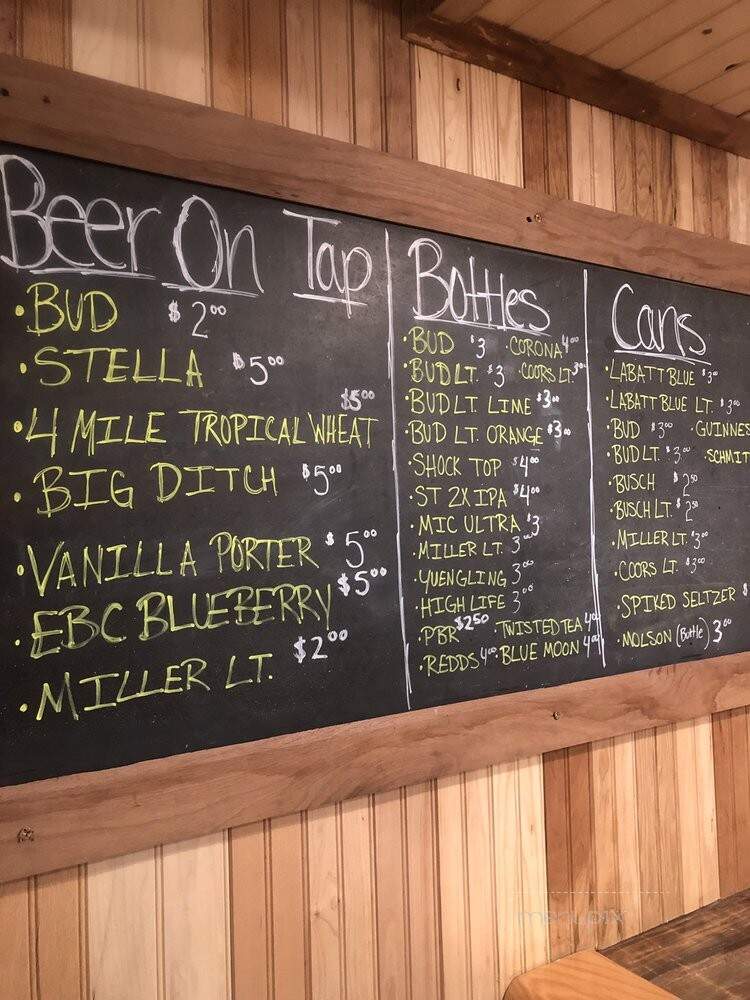 Beer On Tap
• BUD $2⁰⁰
• STELLA $5⁰⁰
$5⁰⁰
• 4 MILE TROPICAL WHEAT
• BIG DITCH $5⁰⁰
• VANILLA PORTER $5⁰⁰
• EBC BLUEBERRY $5⁰⁰
• MILLER LT. $2⁰⁰
Bottles
• BUD $3 • CORONA 4⁰⁰
• BUD LT. $3 • COORS LT. 3⁰⁰
• BUD LT. LIME $3⁰⁰
• BUD LT. ORANGE $3⁰⁰
• SHOCK TOP $4⁰⁰
• ST 2X IPA $4⁰⁰
• MIC ULTRA $3
• MILLER LT. 3⁰⁰
• YUENGLING 3⁰⁰
• HIGH LIFE 3⁰⁰
• PBR $2⁵⁰ • TWISTED TEA 4⁰⁰
• REDDS 4⁰⁰ • BLUE MOON 4⁰⁰
Cans
• LABATT BLUE $3⁰⁰
• LABATT BLUE LT. $3⁰⁰
• BUD $3⁰⁰ • GUINNES
• BUD LT. $3⁰⁰ • SCHMIT
• BUSCH $2⁵⁰
• BUSCH LT. $2⁵⁰
• MILLER LT. $3⁰⁰
• COORS LT. $3⁰⁰
• SPIKED SELTZER $
• MOLSON (Bottle) 3⁰⁰
menupix